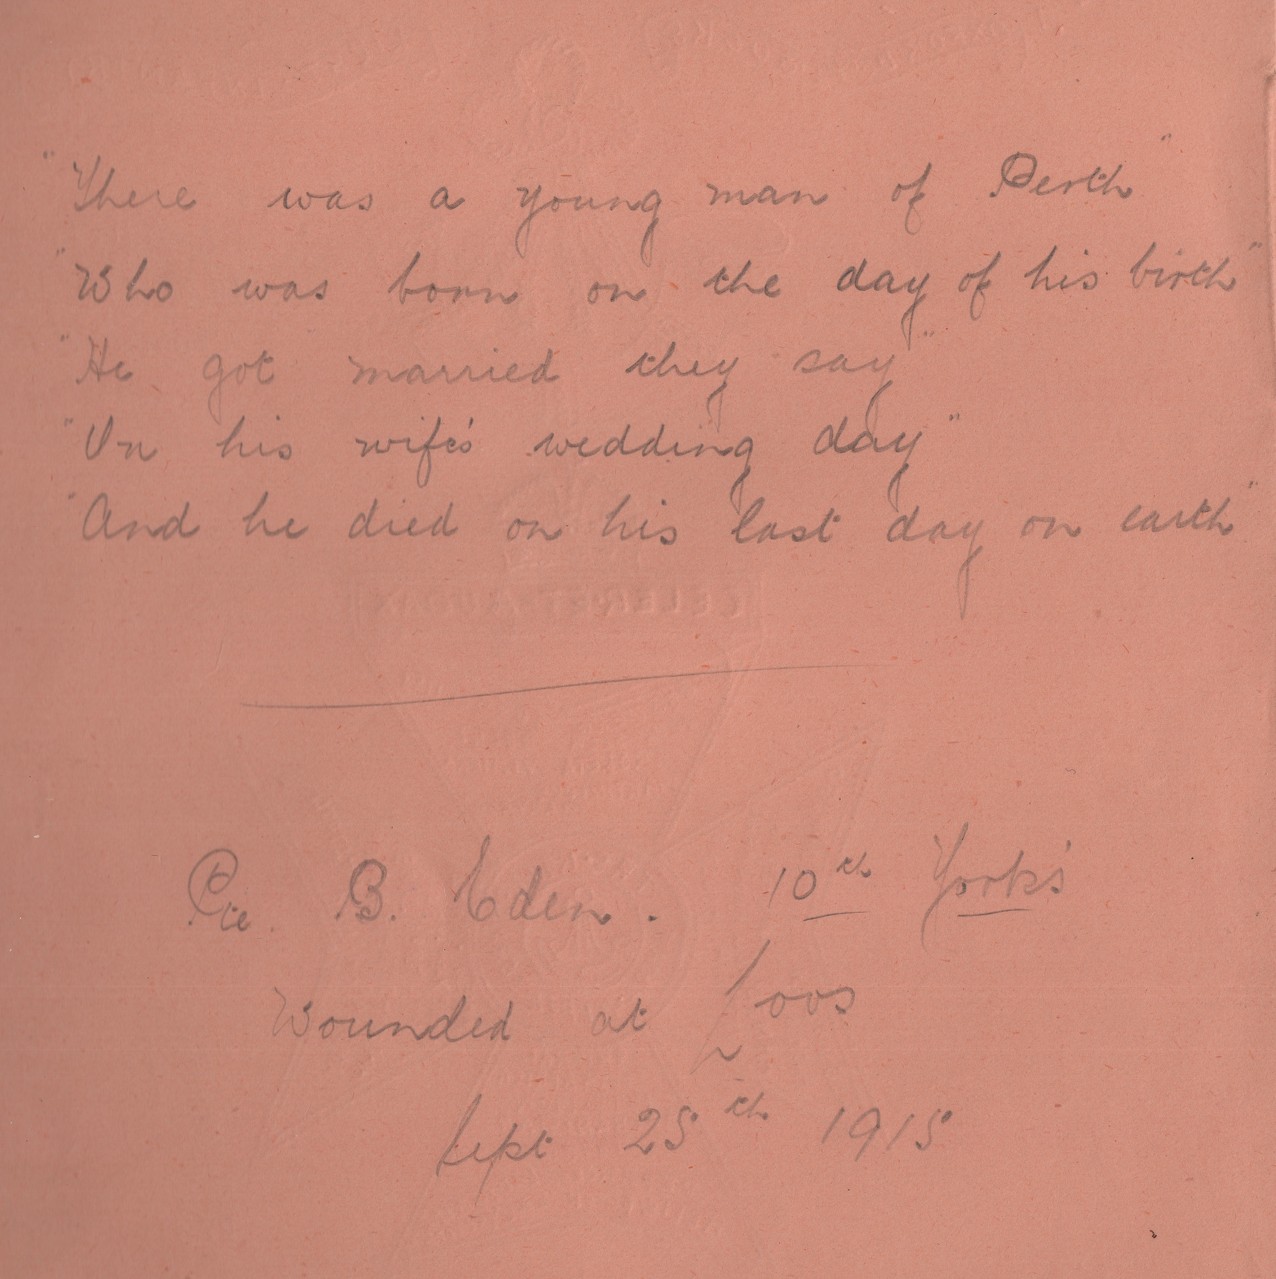 "There was a young man of Perth"
"Who was born on the day of his birth"
"He got married they say"
"On his wife's wedding day"
"And he died on his last day on earth"
Pte. B. Eden. 10th York's
Wounded at Loos
Sept 25th 1915